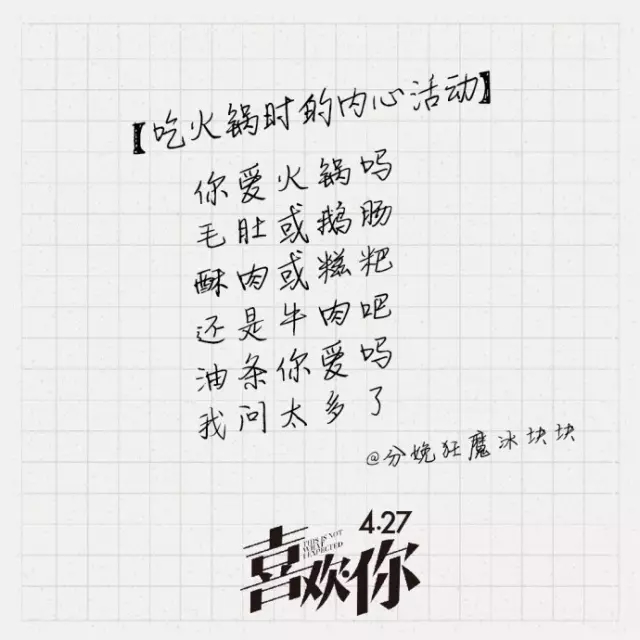 【吃火锅时的内心活动】
你爱火锅吗
毛肚或鹅肠
酥肉或糍粑
还是牛肉吧
油条你爱吗
我问太多了
@分娩狂魔冰块块
4.27
THIS IS NOT
WHAT
I EXPECTED
喜欢·你